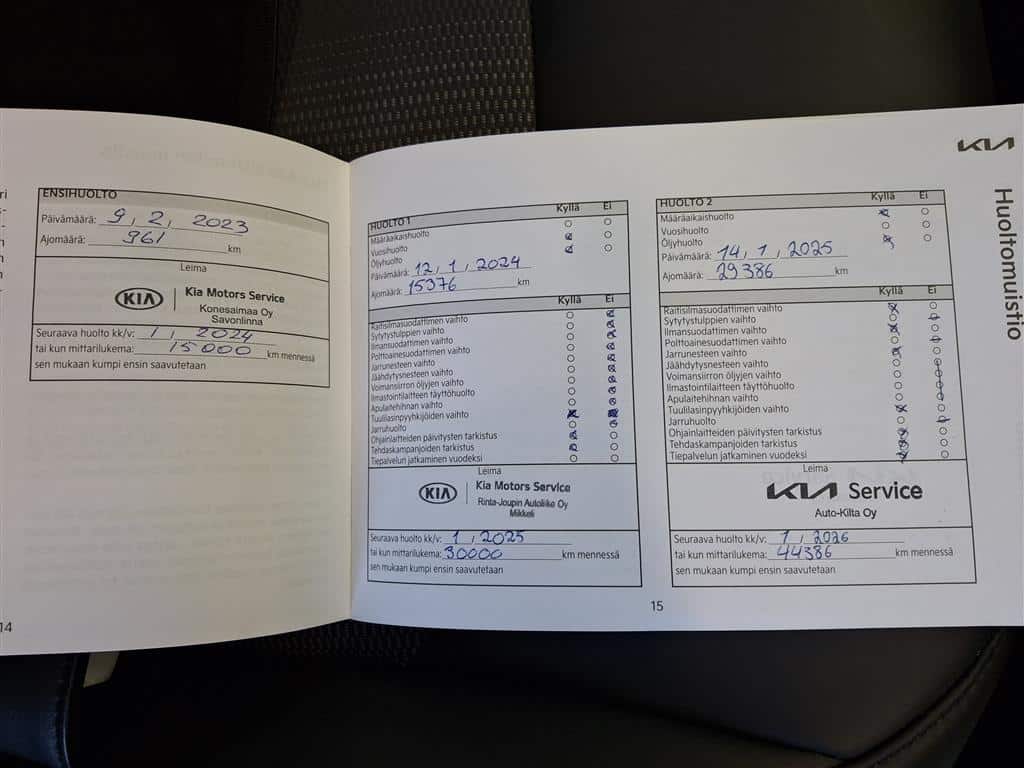 ENSIHUOLTO
Päivämäärä: 9, 2, 2023
Ajomäärä: 961 km
Leima
KIA Kia Motors Service
Konesaimaa Oy
Savonlinna
Seuraava huolto kk/v: 1, 2024
tai kun mittarilukema: 15000 km mennessä
sen mukaan kumpi ensin saavutetaan
14
HUOLTO 1 Kyllä Ei
Määräaikaishuolto
Vuosihuolto
Öljyhuolto
Päivämäärä: 12, 1, 2024
Ajomäärä: 15376 km
Kyllä Ei
Raitisilmasuodattimen vaihto
Sytytystulppien vaihto
Ilmansuodattimen vaihto
Polttoainesuodattimen vaihto
Jarrunesteen vaihto
Jäähdytysnesteen vaihto
Voimansiirron öljyjen vaihto
Ilmastointilaitteen täyttöhuolto
Apulaitehihnan vaihto
Tuulilasinpyyhkijöiden vaihto
Jarruhuolto
Ohjainlaitteiden päivitysten tarkistus
Tehdaskampanjoiden tarkistus
Tiepalvelun jatkaminen vuodeksi
Leima
KIA Kia Motors Service
Rinta-Joupin Autoliike Oy
Mikkeli
Seuraava huolto kk/v: 1, 2025
tai kun mittarilukema: 30000 km mennessä
sen mukaan kumpi ensin saavutetaan
15
KIA
Huoltomuistio
HUOLTO 2 Kyllä Ei
Määräaikaishuolto
Vuosihuolto
Öljyhuolto
Päivämäärä: 14, 1, 2025
Ajomäärä: 29386 km
Kyllä Ei
Raitisilmasuodattimen vaihto
Sytytystulppien vaihto
Ilmansuodattimen vaihto
Polttoainesuodattimen vaihto
Jarrunesteen vaihto
Jäähdytysnesteen vaihto
Voimansiirron öljyjen vaihto
Ilmastointilaitteen täyttöhuolto
Apulaitehihnan vaihto
Tuulilasinpyyhkijöiden vaihto
Jarruhuolto
Ohjainlaitteiden päivitysten tarkistus
Tehdaskampanjoiden tarkistus
Tiepalvelun jatkaminen vuodeksi
Leima
KIA Service
Auto-Kilta Oy
Seuraava huolto kk/v: 1, 2026
tai kun mittarilukema: 44386 km mennessä
sen mukaan kumpi ensin saavutetaan